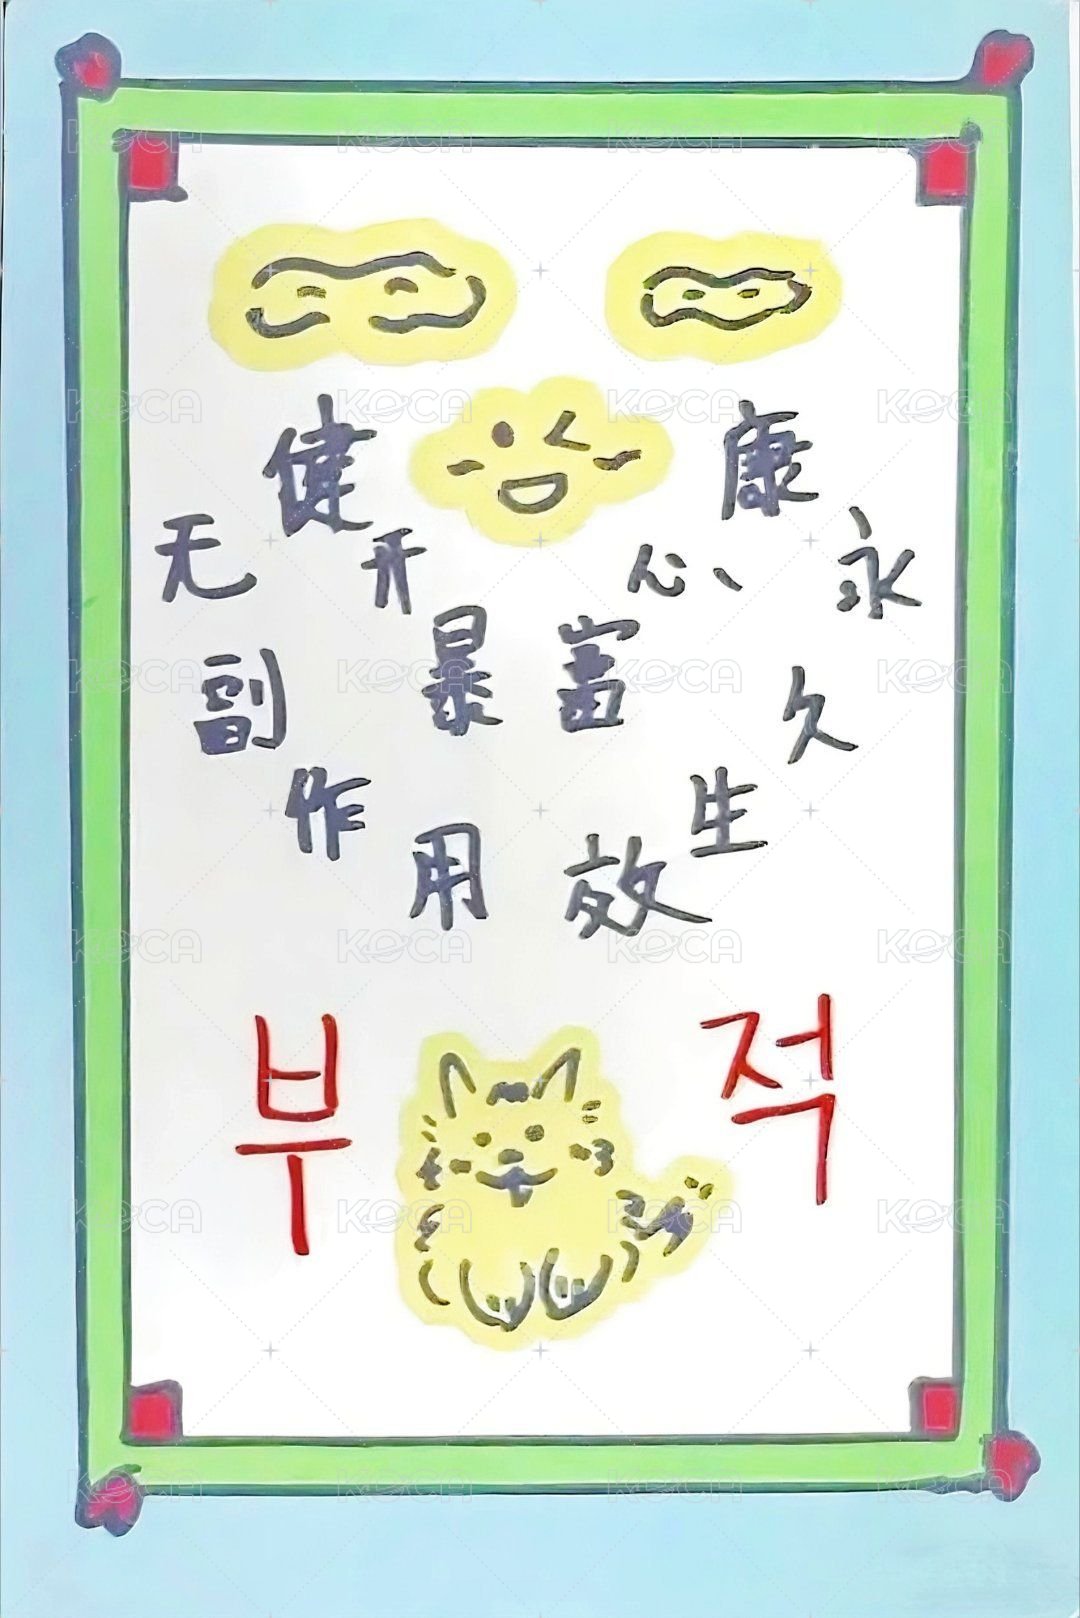 健康
开心
暴富
无副作用
永久生效
부적
KOCA